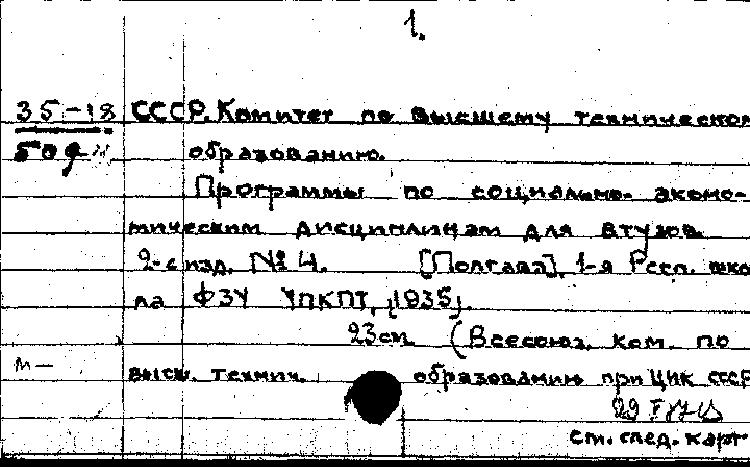 1.
35-18 СССР. Комитет по высшему техническом
образованию.
Программы по социально-эконо-
мическим дисциплинам для втузов.
2-е изд. № 4. [Полтава], 1-я Респ. шко
ла ФЗУ УПКПТ, [1935].
23см. (Всесоюз. ком. по
М— высш. технич. образованию при ЦИК СССР
см. след. карт